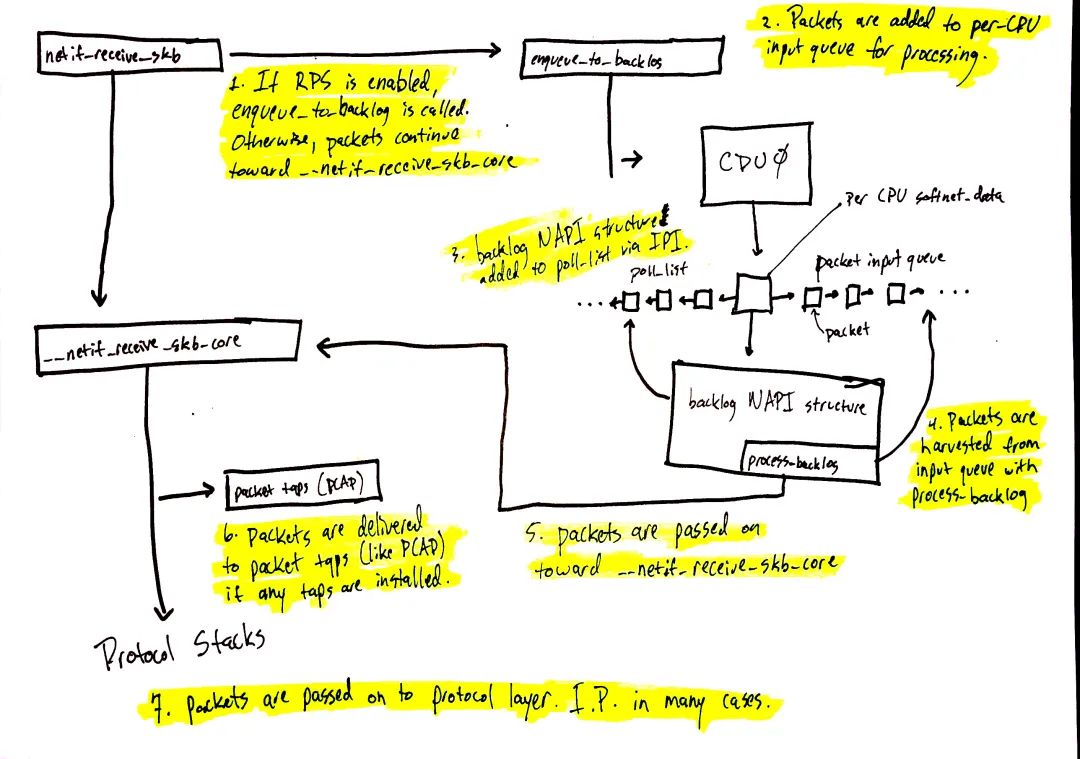 netif_receive_skb
1. If RPS is enabled,
enqueue_to_backlog is called.
Otherwise, packets continue
toward __netif_receive_skb_core
enqueue_to_backlog
2. Packets are added to per-CPU
input queue for processing.
CPU 0
Per CPU softnet_data
3. backlog NAPI structure
added to poll_list via IPI.
poll_list
packet input queue
packet
__netif_receive_skb_core
backlog NAPI structure
process_backlog
4. Packets are
harvested from
input queue with
process_backlog
packet taps (PCAP)
6. Packets are delivered
to packet taps (like PCAP)
if any taps are installed.
5. packets are passed on
toward __netif_receive_skb_core
Protocol Stacks
7. packets are passed on to protocol layer. I.P. in many cases.